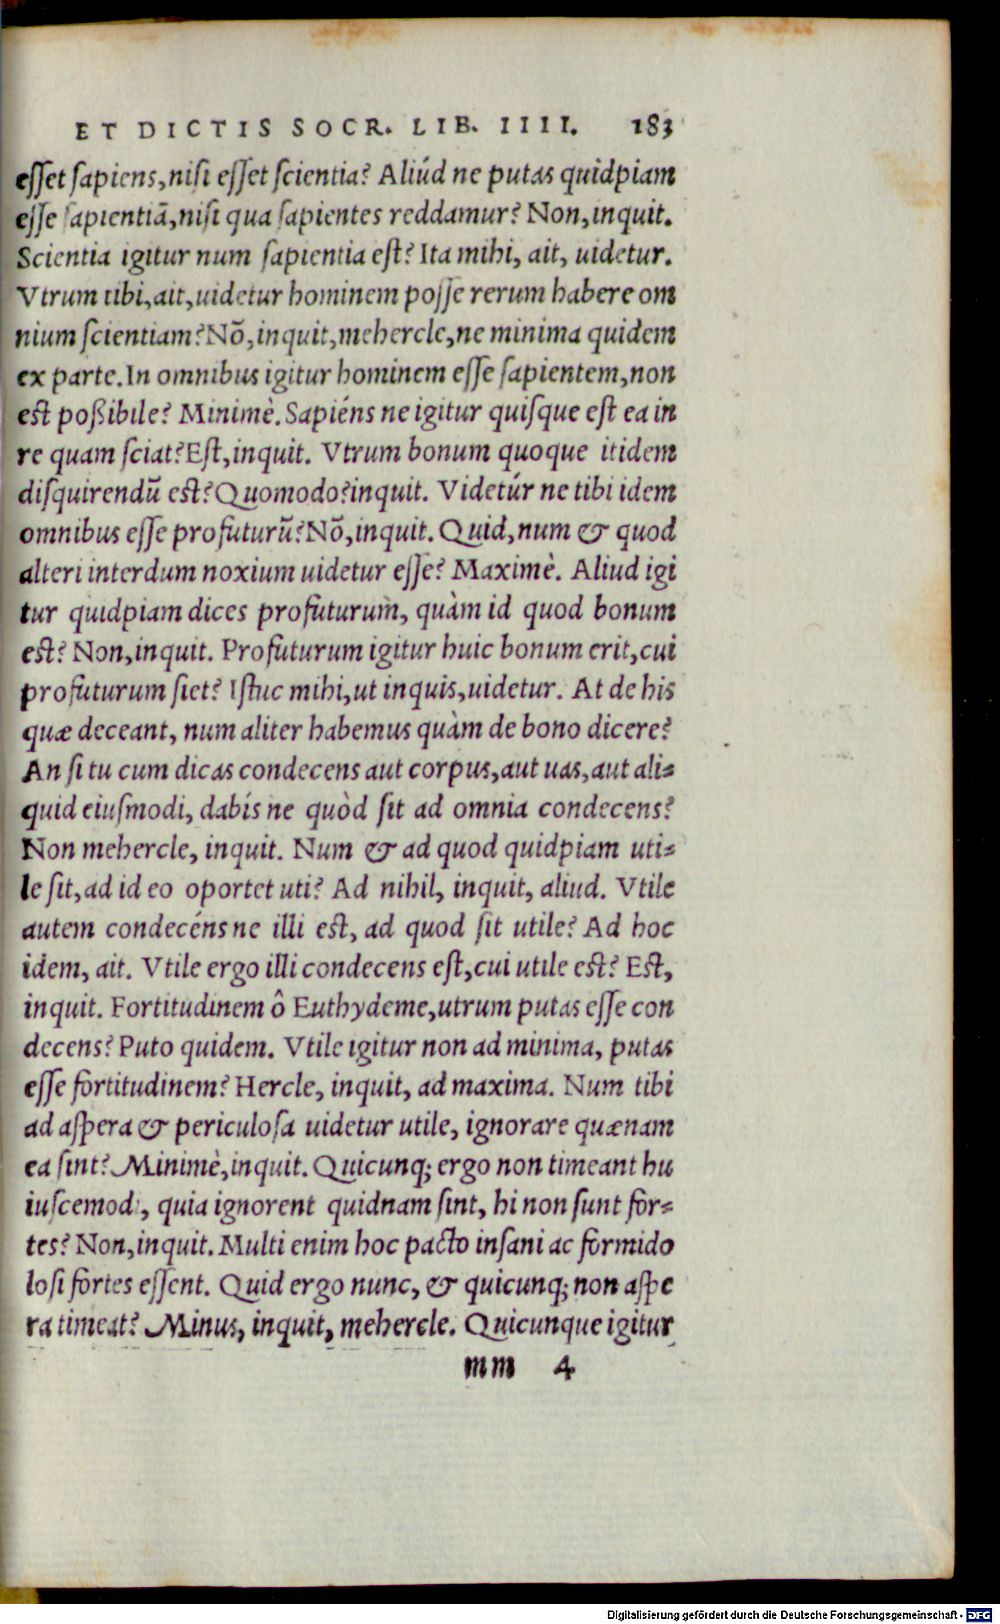 ET DICTIS SOCR. LIB. IIII. 183
esset sapiens, nisi esset scientia? Aliúd ne putas quidpiam
esse sapientiā, nisi qua sapientes reddamur? Non, inquit.
Scientia igitur num sapientia est? Ita mihi, ait, uidetur.
Vtrum tibi, ait, uidetur hominem posse rerum habere om
nium scientiam? Nō, inquit, mehercle, ne minima quidem
ex parte. In omnibus igitur hominem esse sapientem, non
est poßibile? Minimè. Sapiéns ne igitur quisque est ea in
re quam sciat? Est, inquit. Vtrum bonum quoque itidem
disquirendū est? Quomodo? inquit. Videtúr ne tibi idem
omnibus esse profuturū? Nō, inquit. Quid, num & quod
alteri interdum noxium uidetur esse? Maximè. Aliud igi
tur quidpiam dices profuturum, quàm id quod bonum
est? Non, inquit. Profuturum igitur huic bonum erit, cui
profuturum siet? Istuc mihi, ut inquis, uidetur. At de his
quæ deceant, num aliter habemus quàm de bono dicere?
An si tu cum dicas condecens aut corpus, aut uas, aut ali-
quid eiusmodi, dabís ne quòd sit ad omnia condecens?
Non mehercle, inquit. Num & ad quod quidpiam uti-
le sit, ad id eo oportet uti? Ad nihil, inquit, aliud. Vtile
autem condecéns ne illi est, ad quod sit utile? Ad hoc
idem, ait. Vtile ergo illi condecens est, cui utile est? Est,
inquit. Fortitudinem ô Euthydeme, utrum putas esse con
decens? Puto quidem. Vtile igitur non ad minima, putas
esse fortitudinem? Hercle, inquit, ad maxima. Num tibi
ad aspera & periculosa uidetur utile, ignorare quænam
ea sint? Minimè, inquit. Quicunq; ergo non timeant hu
iuscemodi, quia ignorent quidnam sint, hi non sunt for-
tes? Non, inquit. Multi enim hoc pacto insani ac formido
losi fortes essent. Quid ergo nunc, & quicunq; non aspe
ra timeat? Minus, inquit, mehercle. Quicunque igitur
mm 4
Digitalisierung gefördert durch die Deutsche Forschungsgemeinschaft - DFG